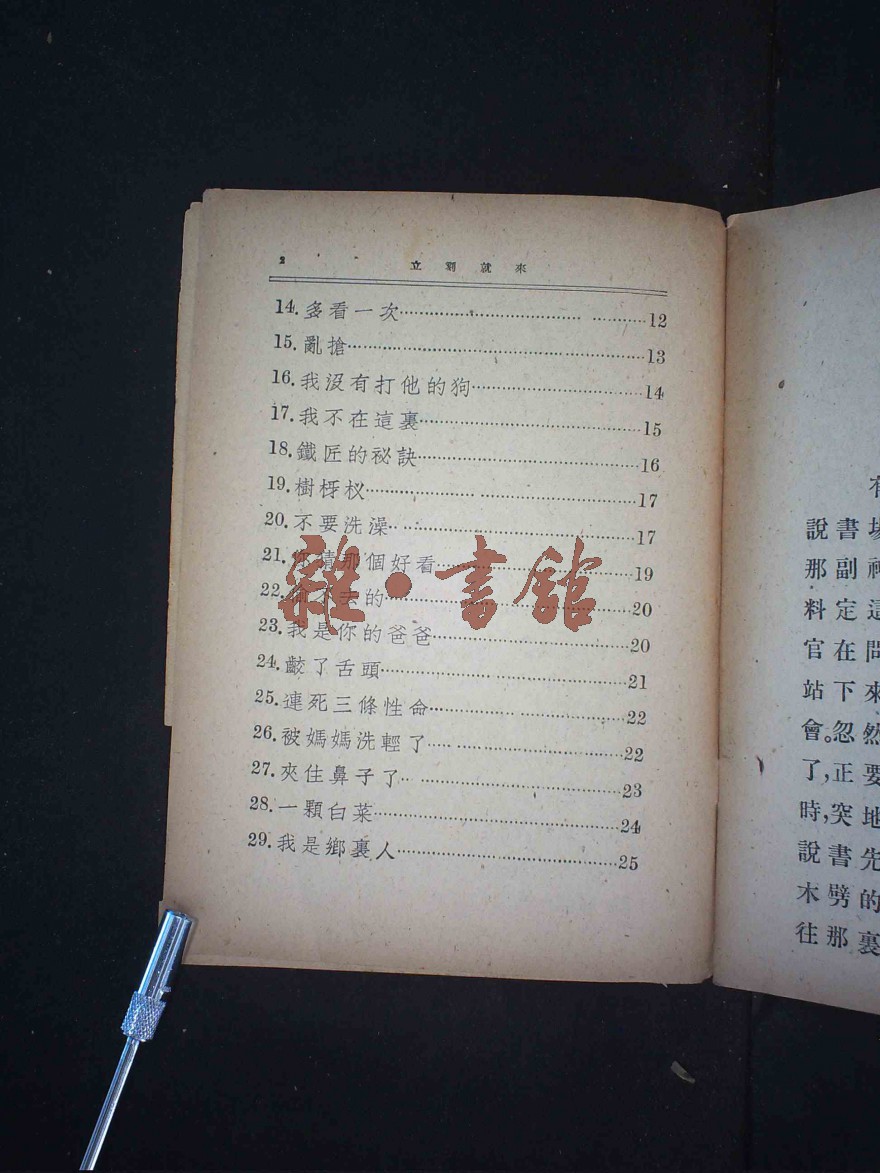 2 立刻就來
14.多看一次 12
15.亂搶 13
16.我沒有打他的狗 14
17.我不在這裏 15
18.鐵匠的祕訣 16
19.樹枒杈 17
20.不要洗澡 17
21.你猜那個好看 19
22.去的 20
23.我是你的爸爸 20
24.齩了舌頭 21
25.連死三條性命 22
26.被媽媽洗輕了 22
27.夾住鼻子了 23
28.一顆白菜 24
29.我是鄉裏人 25
雜·書館
有
說書場
那副神
料定這
官在問
站下來
會。忽然
了,正要
時,突地
說書先
木劈的
往那裏